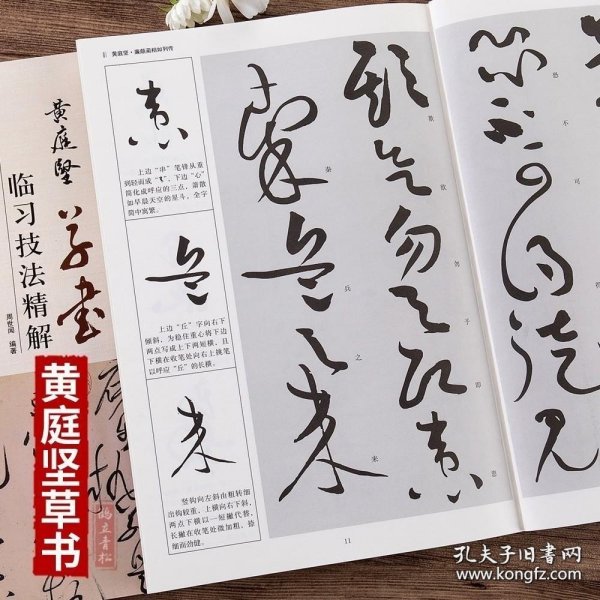 黄庭坚·廉颇蔺相如列传
患
上边“串”笔锋从重
简化成呼应的三点,萧散
如早晨天空的星斗,全字
简中寓繁。
兵
上边“丘”字向右下
倾斜,为稳住重心将下边
两点写成上下两短横,且
下横在收笔处向右上挑笔
以呼应“丘”的长横。
来
竖钩向左斜由粗转细
出钩较重,上横向右下斜,
两点下横以一短撇代替,
长撇在收笔处微加粗,捺
细而劲健。
恐不可得徒见
恐不可得
欺欲勿予即患
欺欲勿予即患
秦兵之来
秦兵之来
11
黄庭坚
草书
临习技法精解
周世闻 编著
黄庭坚草书
孔夫子旧书网
www.kongfz.com